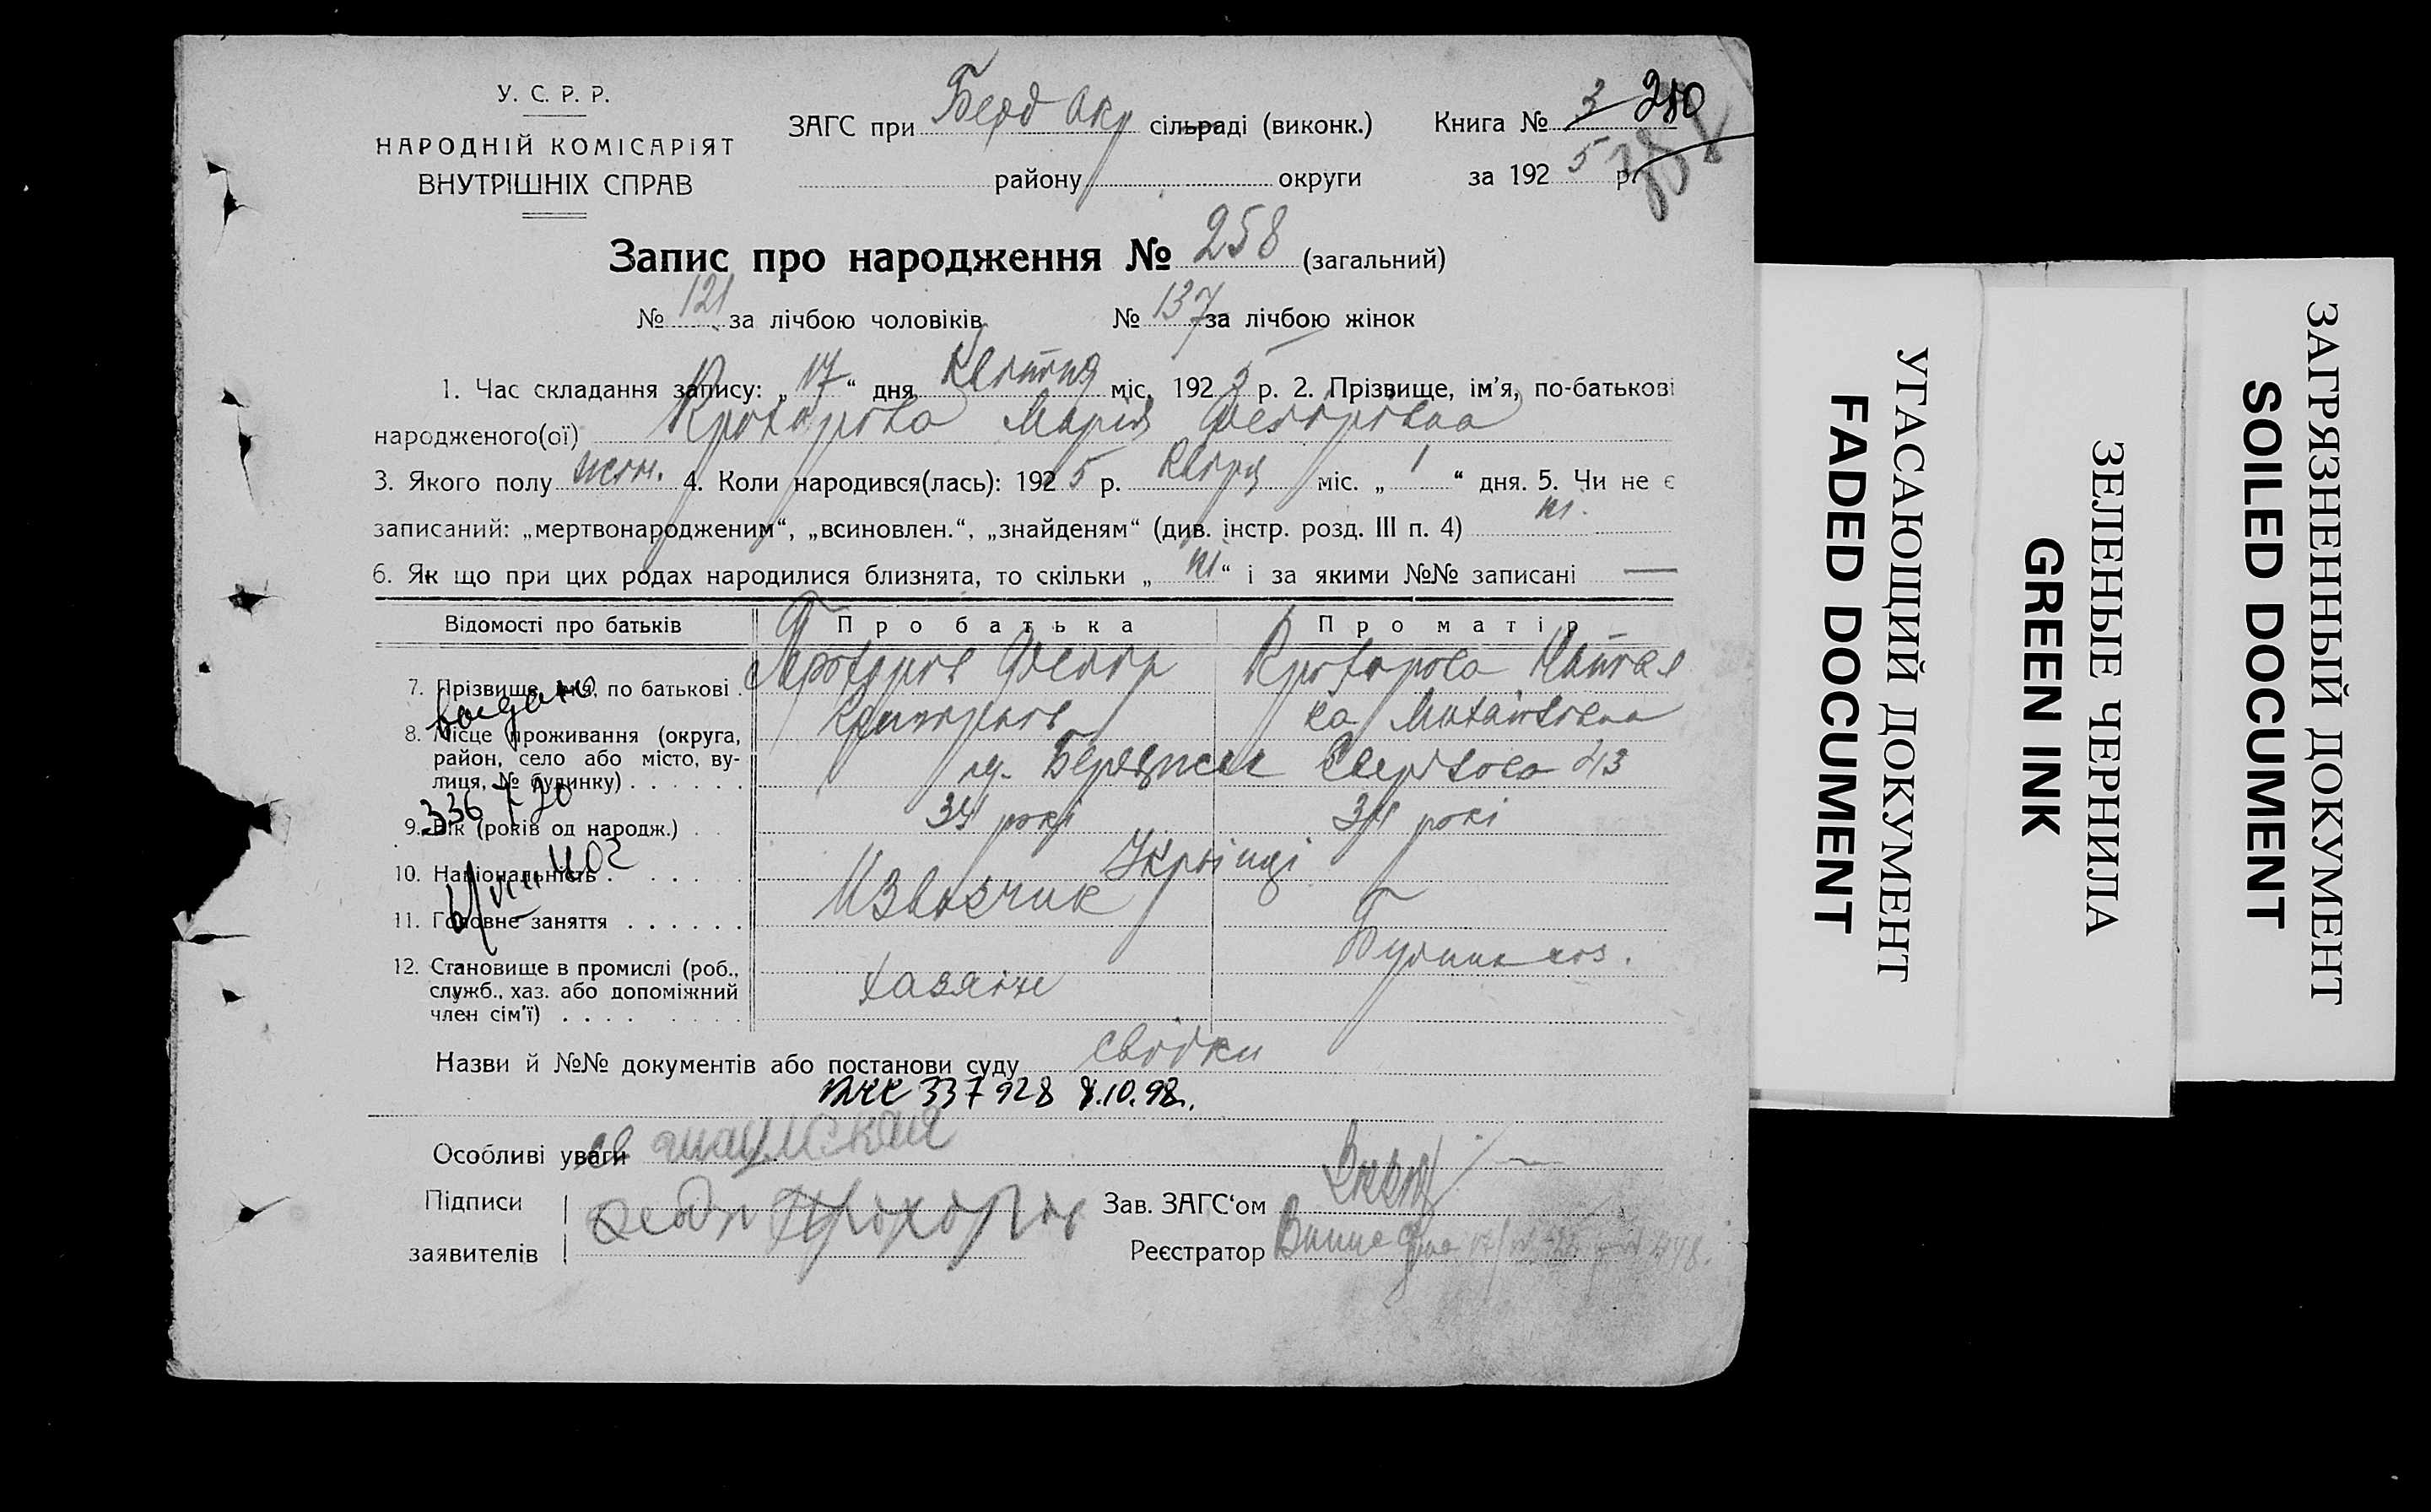 У. С. Р. Р.
НАРОДНІЙ КОМІСАРІЯТ
ВНУТРІШНІХ СПРАВ
ЗАГС при Берд Окр сільраді (виконк.)
району округи
Книга № 3 280
за 192 5 р.
Запис про народження № 258 (загальний)
№ 121 за лічбою чоловіків № 137 за лічбою жінок
1. Час складання запису: „ 17 “ дня Квітня міс. 192 5 р. 2. Прізвище, ім’я, по-батькові
народженого(ої) Прохорова Марія Федорівна
3. Якого полу жен. 4. Коли народився(лась): 192 5 р. міс. „ 1 “ дня. 5. Чи не є
записаний: „мертвонародженим“, „всиновлен.“, „знайденям“ (див. інстр. розд. III п. 4) ні.
6. Як що при цих родах народилися близнята, то скільки „ ні “ і за якими №№ записані —
Відомості про батьків Про батька Про матір
7. Прізвище, ім’я, по батькові . Прохоров Федор Прохорова
Михайловна
8. Місце проживання (округа,
район, село або місто, ву-
лиця, № будинку) . . . . . . 43
9. Вік (років од народж.) . . 34 рокі 34 рокі
10. Національність . . . . . Українці
11. Головне заняття . . . . . . Извозчик
12. Становище в промислі (роб.,
служб., хаз. або допоміжний
член сім’ї) . . . . . . . . хазяїн
видано
336 720
Назви й №№ документів або постанови суду свідки
337928 8.10.98.
Особливі уваги
Підписи
заявителів Федор Прохоров
Зав. ЗАГС‘ом
Реєстратор
УГАСАЮЩИЙ ДОКУМЕНТ
FADED DOCUMENT
ЗЕЛЕНЫЕ ЧЕРНИЛА
GREEN INK
ЗАГРЯЗНЕННЫЙ ДОКУМЕНТ
SOILED DOCUMENT